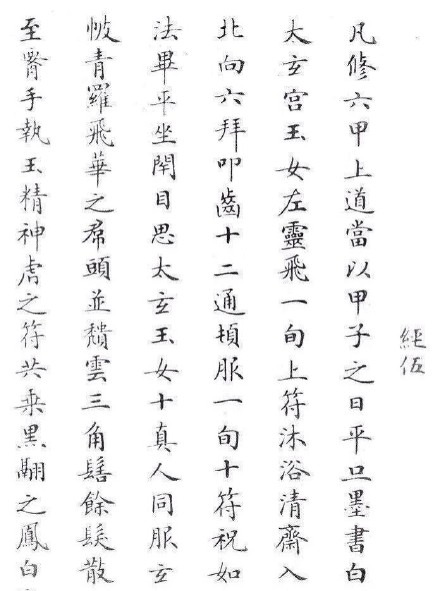 經伍
凡修六甲上道當以甲子之日平旦墨書白
太玄宮玉女左靈飛一旬上符沐浴清齋入
北向六拜叩齒十二通頓服一旬十符祝如
法畢平坐閉目思太玄玉女十真人同服玄
帔青羅飛華之帬頭並頹雲三角髻餘髮散
至臍手執玉精神虎之符共乘黑翮之鳳白